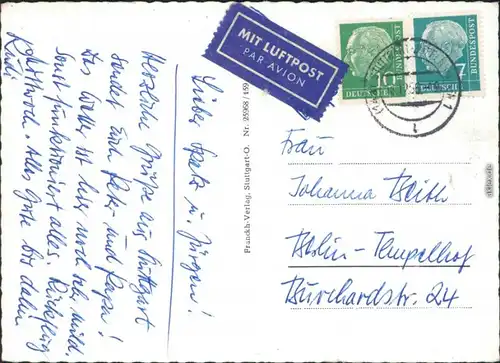 MIT LUFTPOST
PAR AVION
10
DEUTSCHE
BUNDESPOST
7
DEUTSCHE
BUNDESPOST
Lieber Spatz u. Jürgen!
Herzliche Grüße aus Stuttgart
sendet Euch Peter und Papa!
Das Wetter ist hier noch sehr mild.
Sonst funktioniert alles. Rückflug
Mittwoch. Alles Gute bis dahin
Franckh-Verlag, Stuttgart-O. Nr. 25968/459
Frau
Johanna
Berlin-Tempelhof
Burchardstr. 24